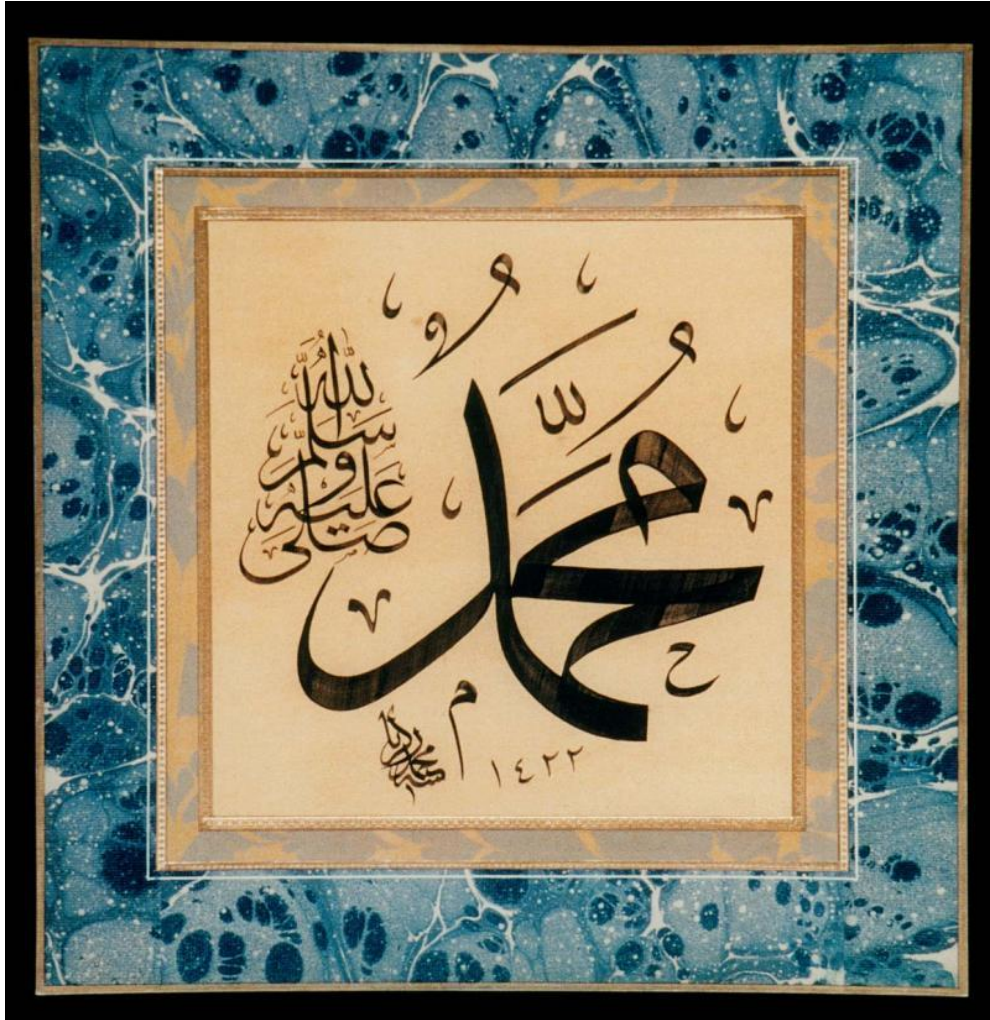 مُحَمَّدٌ
صَلَّى اللهُ عَلَيْهِ وَسَلَّمَ
١٤٢٢